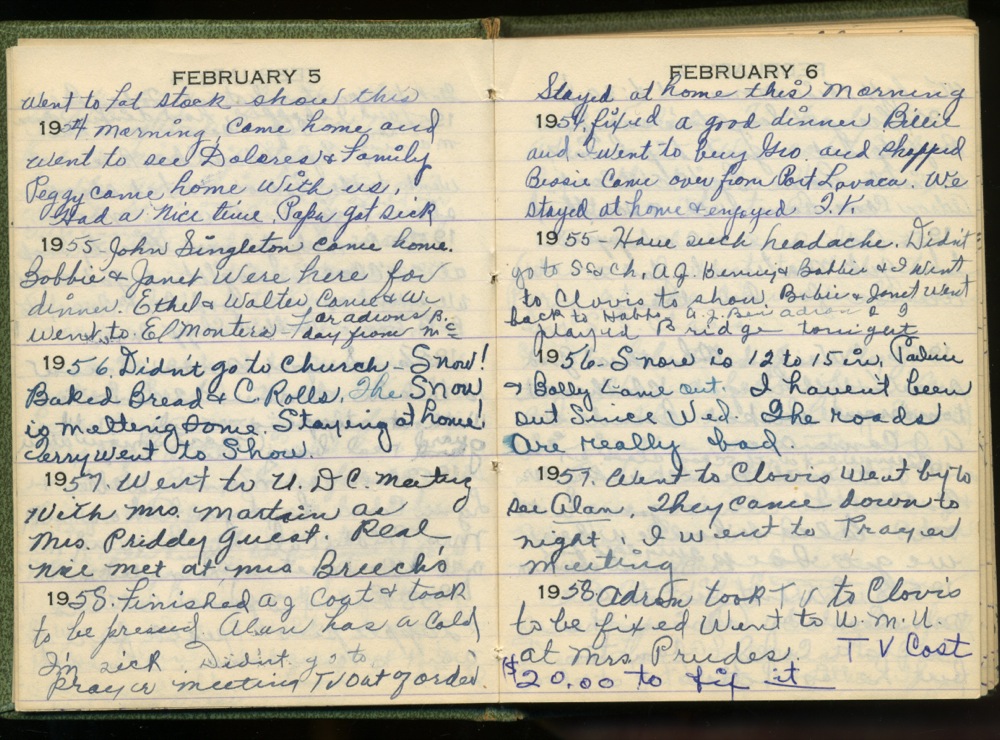 FEBRUARY 5
Went to Fat stock show this
1954 morning, Came home and
went to see Dolores & Family
Peggy came home with us.
Had a nice time. Papa got sick
1955 - John Singleton came home.
Bobbie & Janet were here for
dinner. Ethel & Walter Came & we
went to El Monteria for adrons B.
day from Mc
1956. Didn't go to Church - Snow!
Baked Bread & C. Rolls. The Snow
is melting some. Staying at home!
Terry went to Show.
1957. Went to U. D C. meeting
with Mrs. Martain as
Mrs. Priddy guest. Real
nice met at mrs Breech's
1958. Finished A J Coat & took
to be pressed. Alan has a Cold
I'm sick. Didn't go to
Prayer meeting TV out of order.
FEBRUARY 6
Stayed at home this Morning
1954, fixed a good dinner Billie
and I went to buy Gro. and shopped
Bessie Came over from Port Lavaca. We
stayed at home & enjoyed T.V.
1955 - Have sick headache. Didn't
go to S & Ch. A J. Benny & Bobbie & I went
to Clovis to show. Bobie & Janet went
back to Hobbs. A. J. Ben adron & I
played Bridge tonight
1956 - Snow is 12 to 15 in.
& Bobby Came out. I haven't been
out Since Wed. The roads
are really bad.
1957. Went to Clovis Went by to
see Alan. They came down to
night, I went to Prayer
meeting
1958 Adron took T V to Clovis
to be fixed Went to W. M. U.
at Mrs. Prudes. T V Cost
$20.00 to fix it